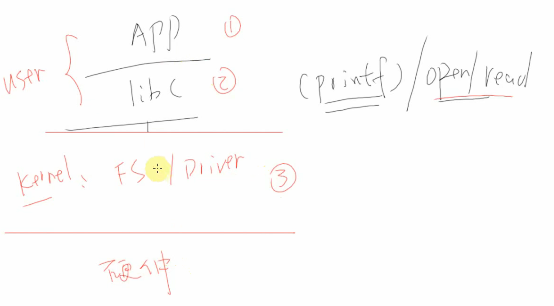 APP ①
user {
libC ②
(printf) / open/read
kernel: FS / Driver ③
硬件